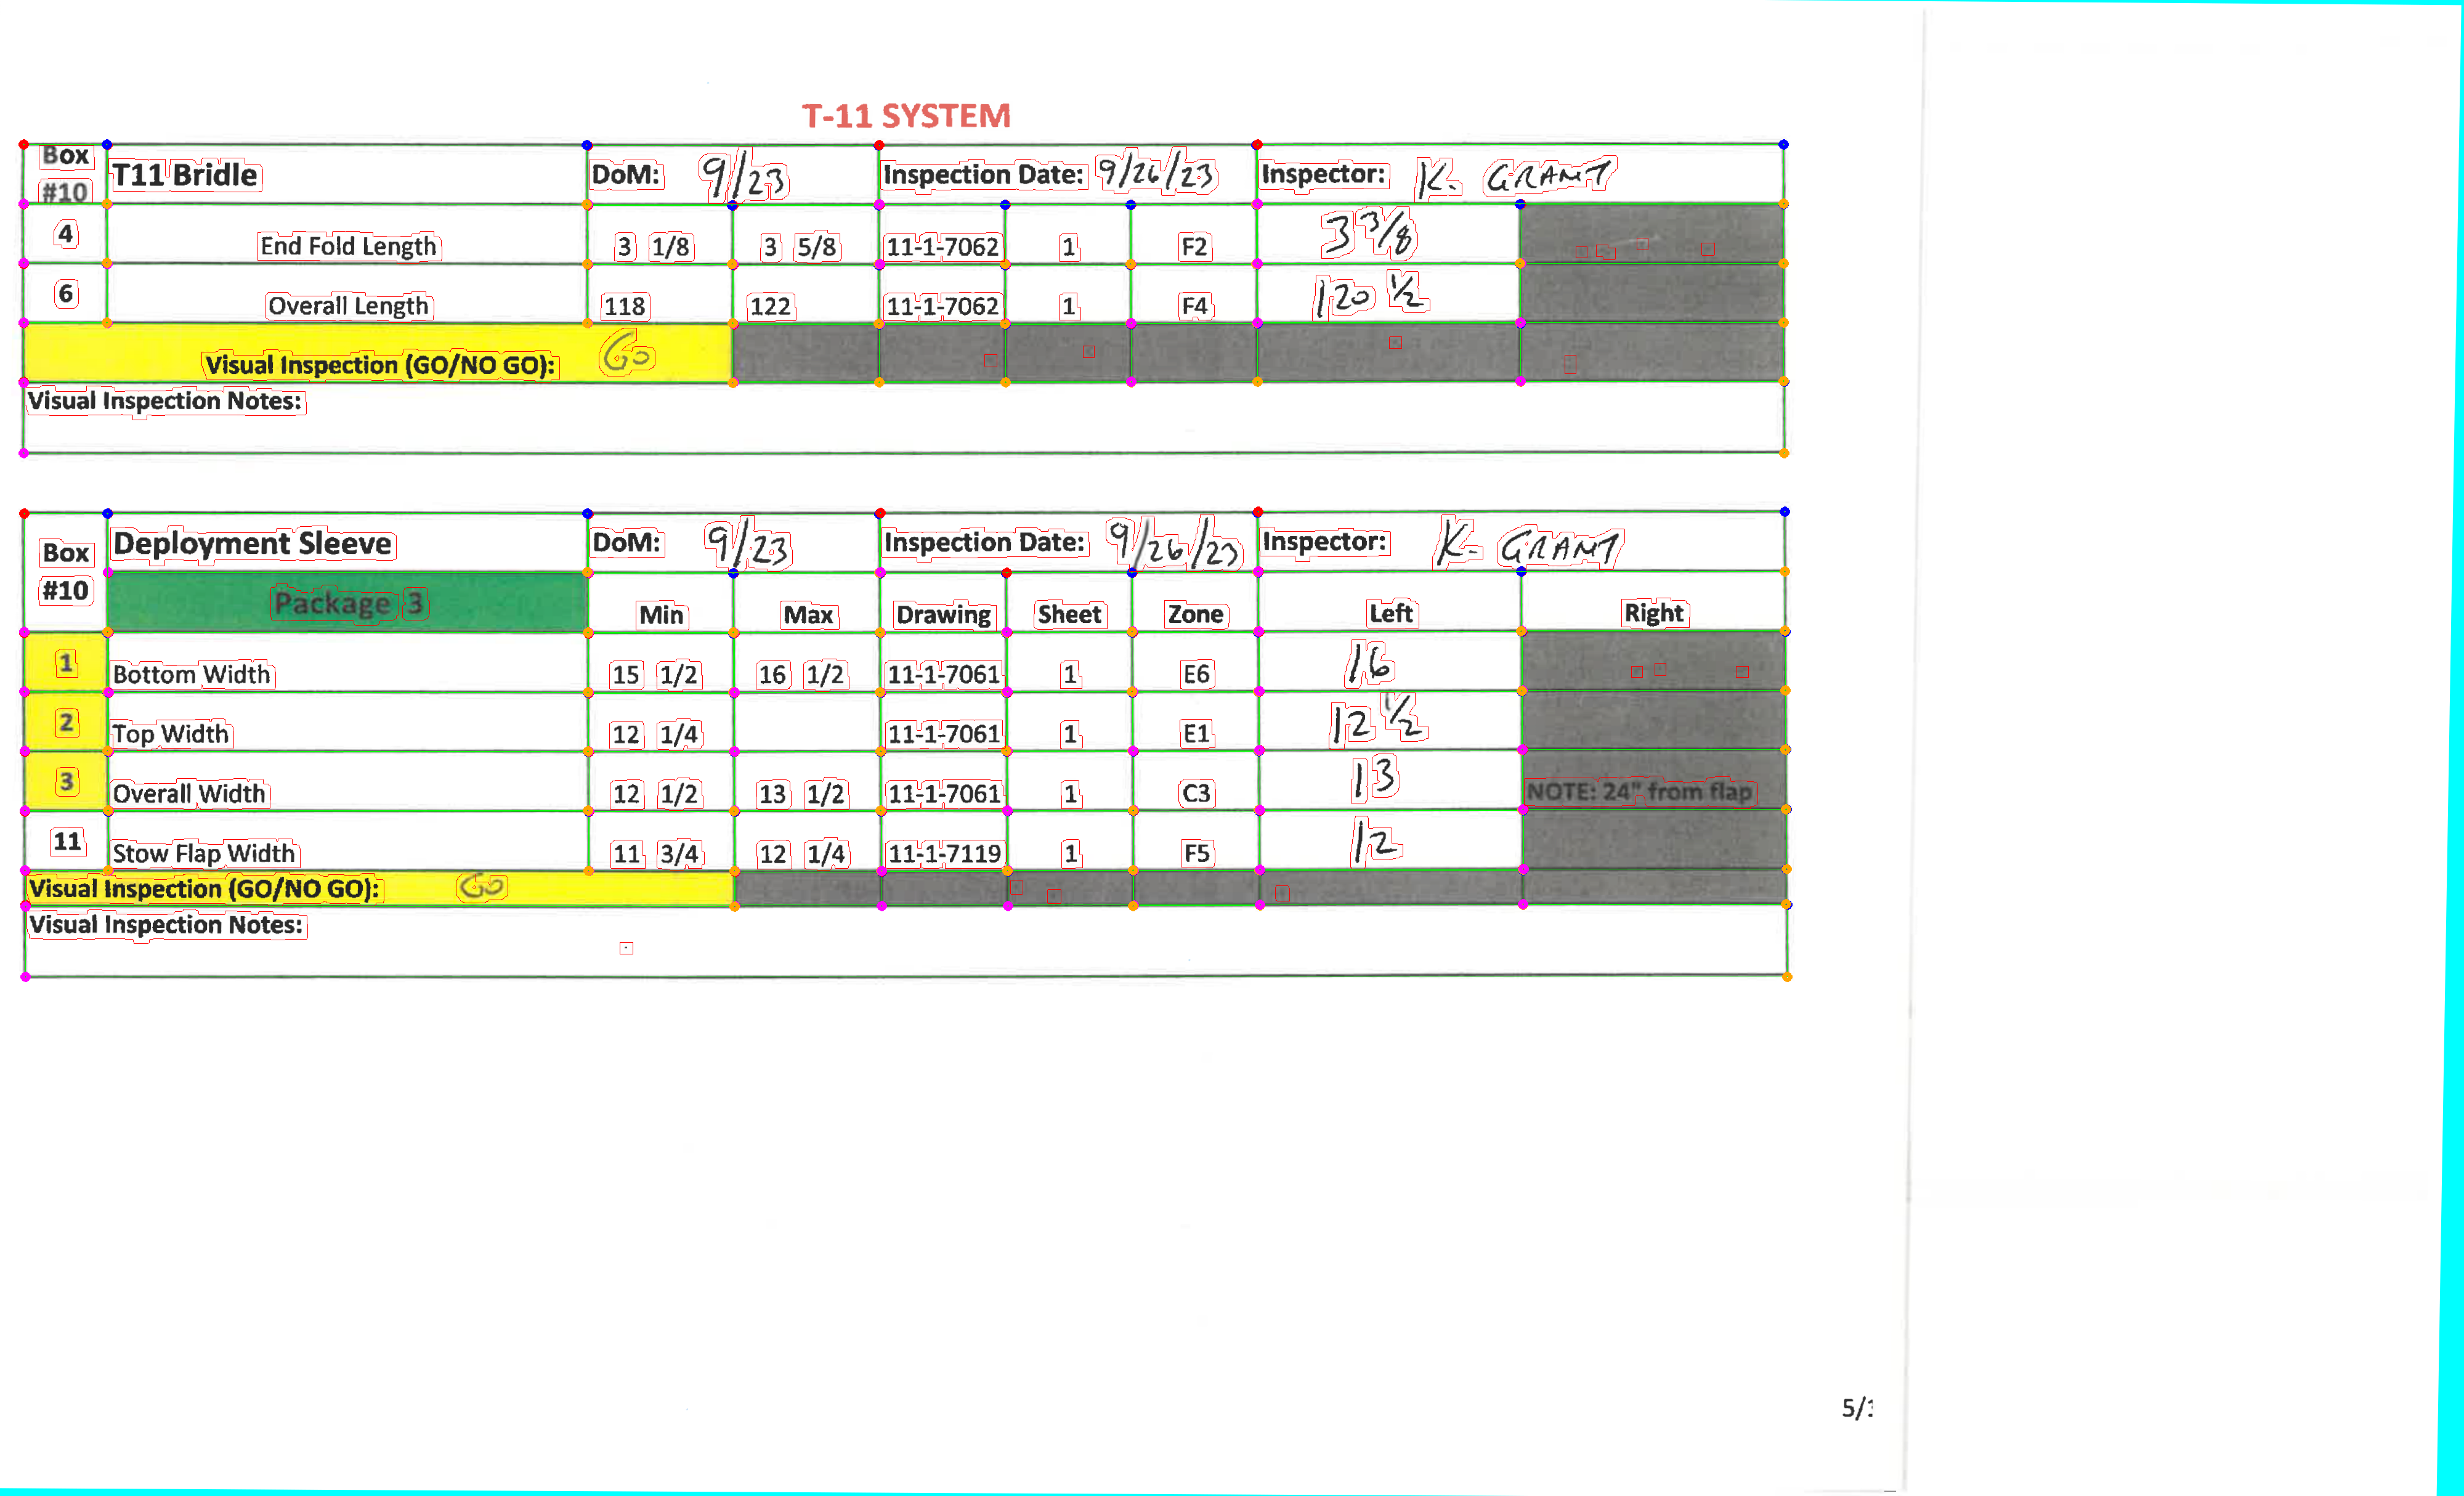 T-11 SYSTEM
Box #10 T11 Bridle DoM: 9/23 Inspection Date: 9/26/23 Inspector: K. GRANT
4 End Fold Length 3 1/8 3 5/8 11-1-7062 1 F2 3 3/8
6 Overall Length 118 122 11-1-7062 1 F4 120 1/2
Visual Inspection (GO/NO GO): GO
Visual Inspection Notes:
Box #10 Deployment Sleeve DoM: 9/23 Inspection Date: 9/26/23 Inspector: K. GRANT
Package 3 Min Max Drawing Sheet Zone Left Right
1 Bottom Width 15 1/2 16 1/2 11-1-7061 1 E6 16
2 Top Width 12 1/4 11-1-7061 1 E1 12 1/2
3 Overall Width 12 1/2 13 1/2 11-1-7061 1 C3 13 NOTE: 24" from flap
11 Stow Flap Width 11 3/4 12 1/4 11-1-7119 1 F5 12
Visual Inspection (GO/NO GO): GO
Visual Inspection Notes: